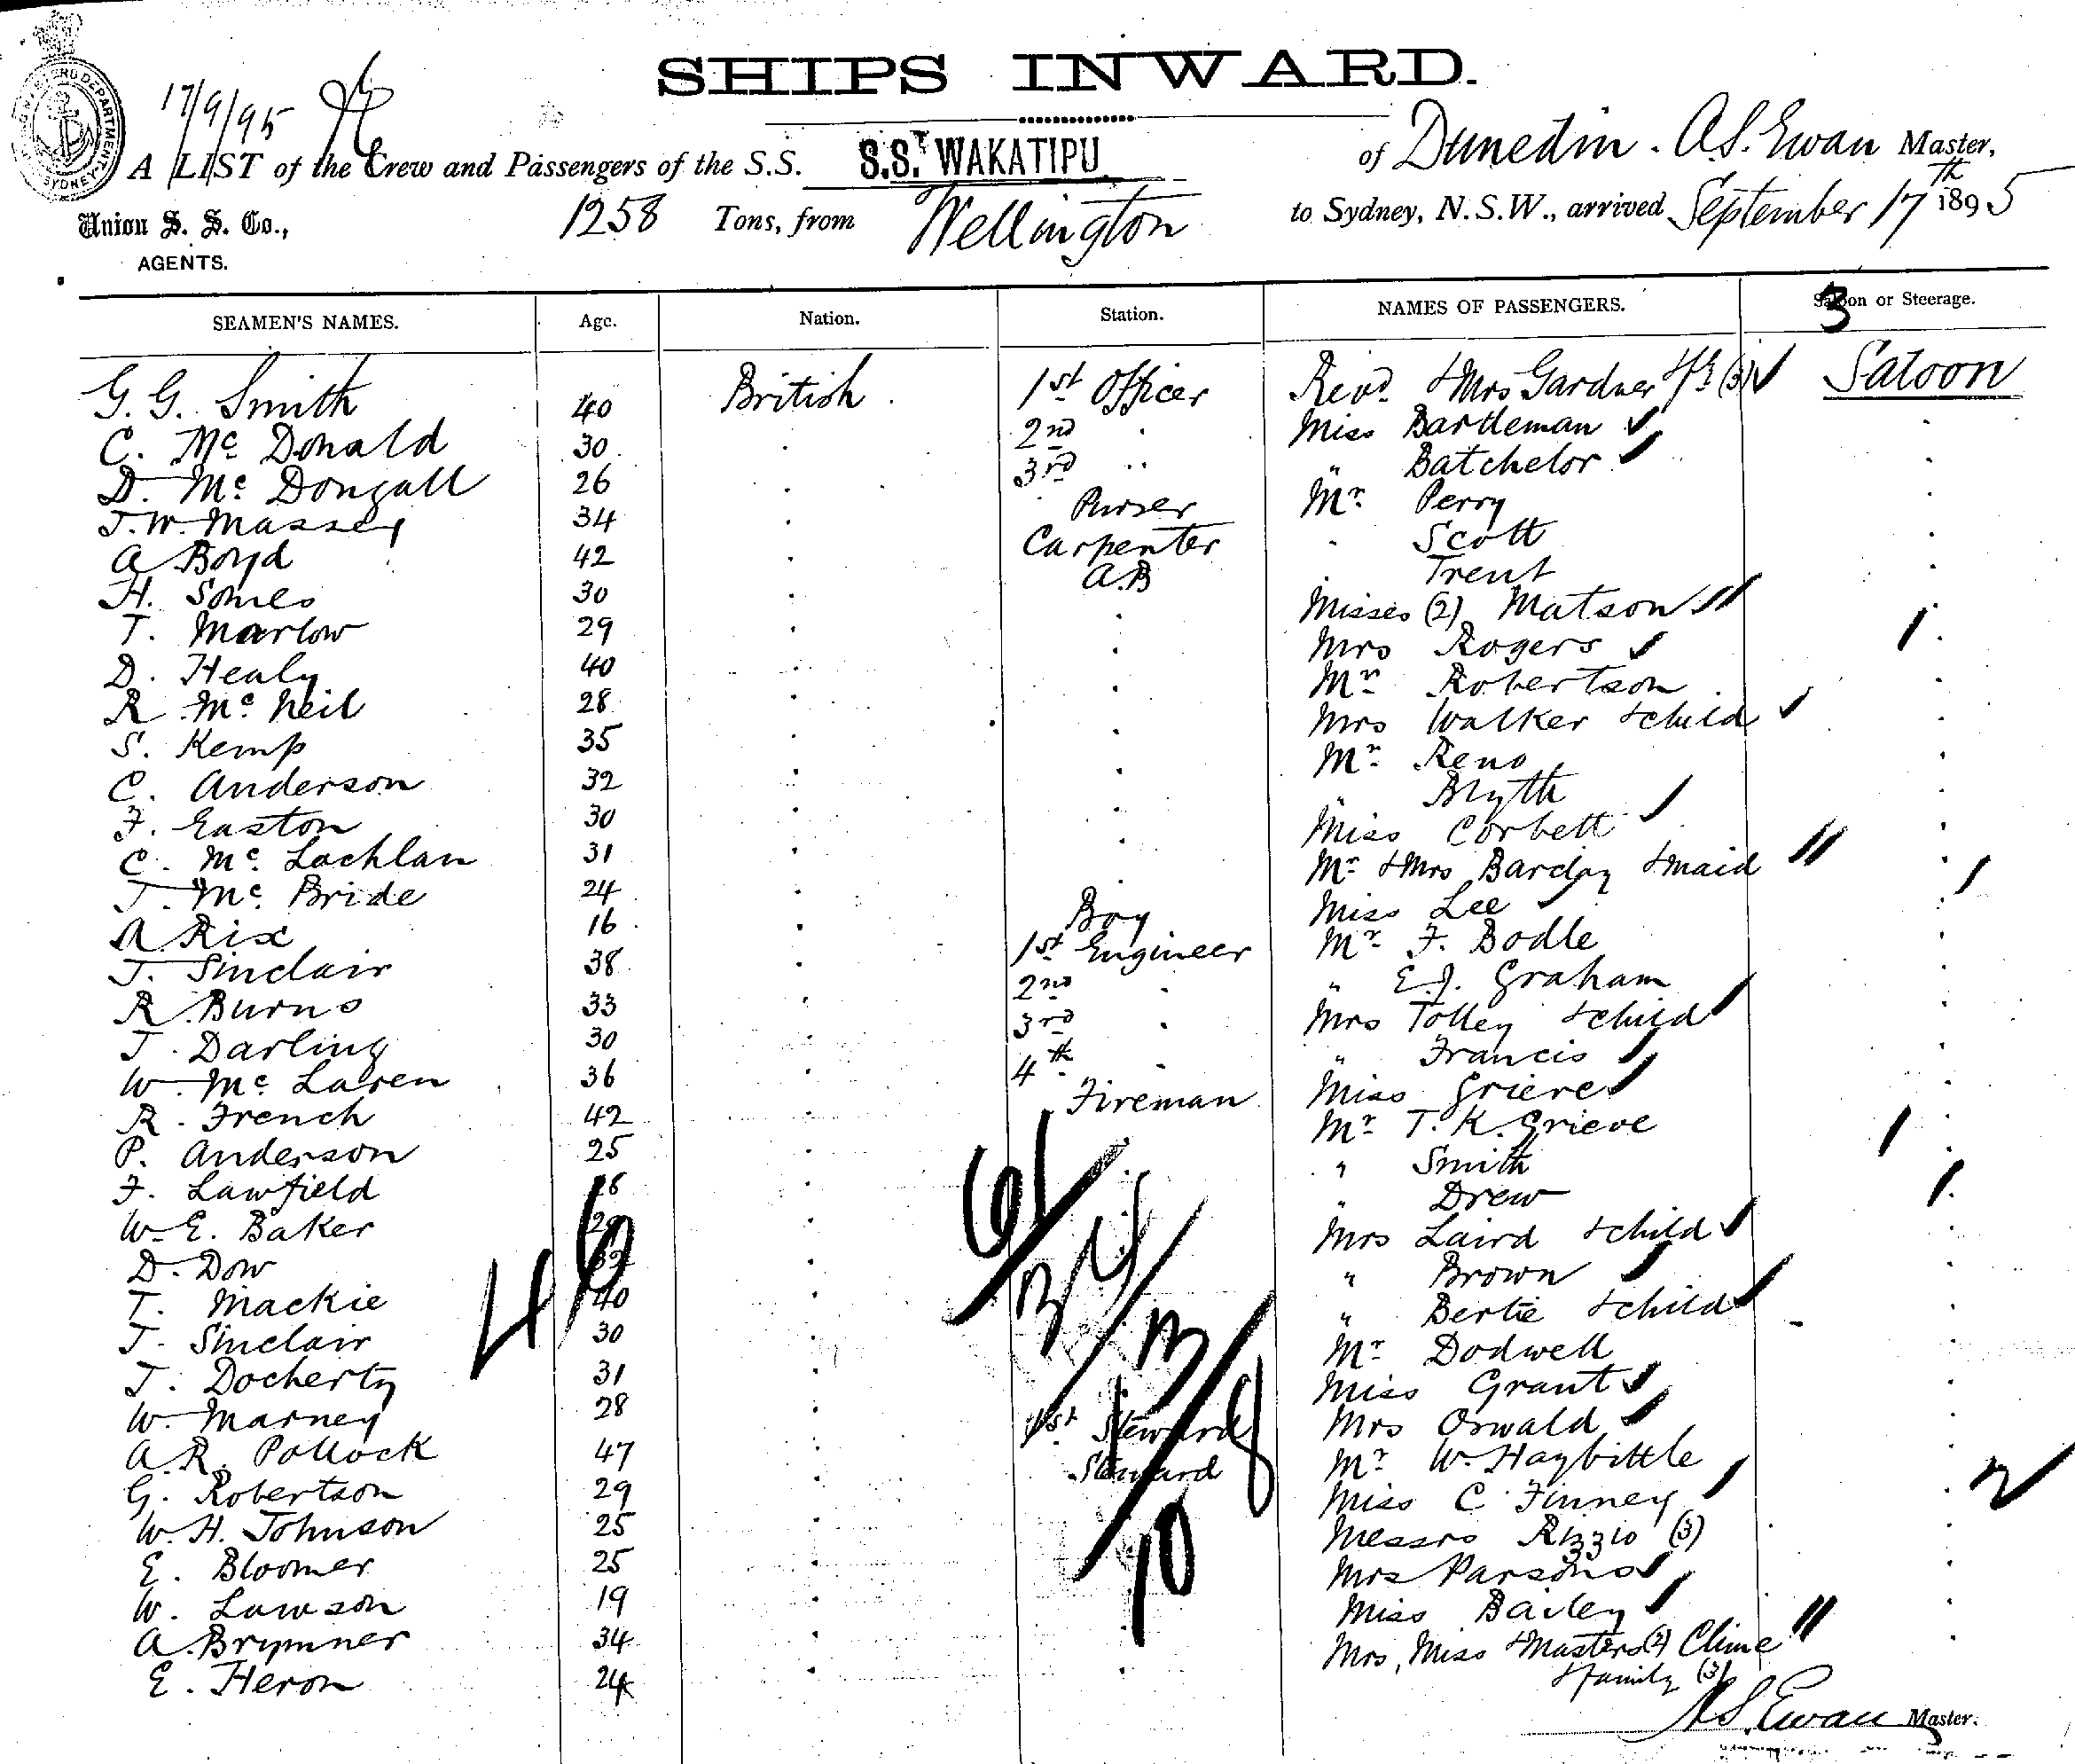 SHIPS INWARD.
17/9/95
A LIST of the Crew and Passengers of the S.S. S.S. WAKATIPU of Dunedin. A.S. Ewan Master,
Union S. S. Co., AGENTS. 1258 Tons, from Wellington to Sydney, N.S.W., arrived September 17th 1895
SEAMEN'S NAMES. Age. Nation. Station. NAMES OF PASSENGERS. Saloon or Steerage.
3
G. G. Smith 40 British 1st Officer Revd & Mrs Gardner (3) Saloon
C. Mc Donald 30 2nd Miss Bartleman
D. Mc Dougall 26 3rd " Batchelor
J. W. Massey 34 Purser Mr Perry
A Boyd 42 Carpenter Scott
H. Somes 30 A.B Trent
T. Marlow 29 Misses (2) Matson
D. Healy 40 Mrs Rogers
R. Mc Neil 28 Mr Robertson
S. Kemp 35 Mrs Walker & child
C. Anderson 32 Mr Reno
F. Easton 30 " Blyth
C. Mc Lachlan 31 Miss Corbett
J. Mc Bride 24 Mr & Mrs Barclay & maid
A Rix 16 Boy Miss Lee
J. Sinclair 38 1st Engineer Mr F. Bodle
R. Burns 33 2nd " E.J. Graham
J. Darling 30 3rd Mrs Tolley & child
W. Mc Laren 36 4th " Francis
R. French 42 Fireman Miss Grieve
P. Anderson 25 Mr T. K. Grieve
F. Lawfield 26 " Smith
W. E. Baker " Drew
D. Dow Mrs Laird & child
T. Mackie 40 " Brown
J. Sinclair 30 " Bertie & child
J. Docherty 31 Mr Dodwell
W. Marney 28 Miss Grant
A. R. Pollock 47 1st Steward Mrs Oswald
G. Robertson 29 Steward Mr W. Haybittle
W. H. Johnson 25 Miss C Finney
E. Bloomer 25 Messrs Rizzio (3)
W. Lawson 19 Mrs Parsons
A. Brymner 34 Miss Bailey
E. Heron 24 Mrs, Miss & Masters (2) Clime
& family (3)
46
61
10
2
A S. Ewan Master.